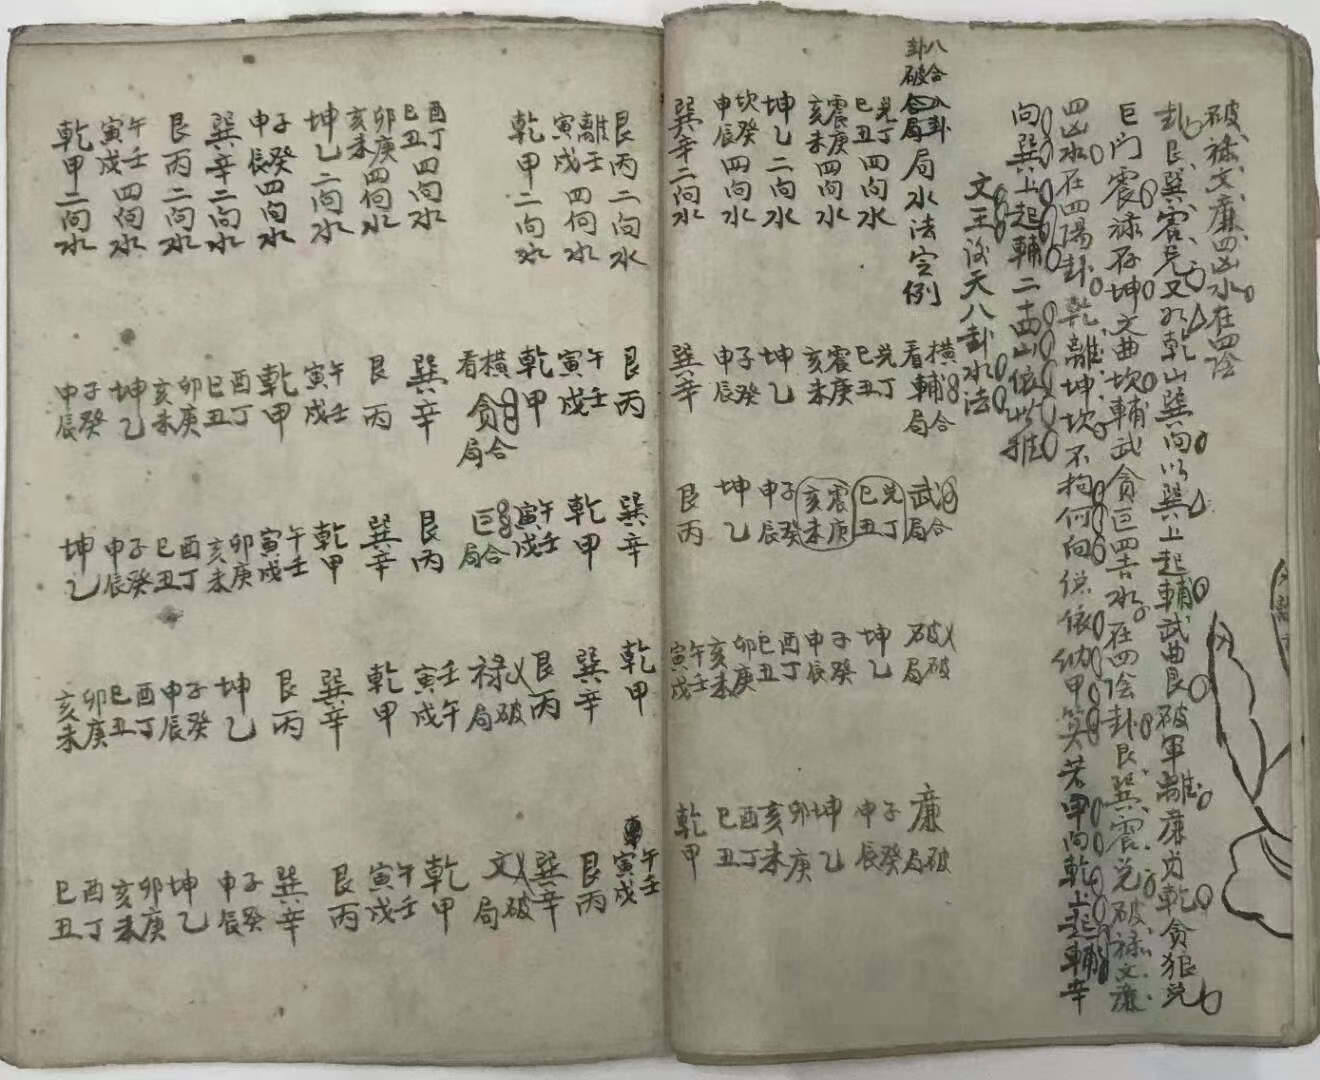 破祿文廉四凶水在四陰
卦艮巽震兌又如乾山巽向以巽上起輔武曲艮破軍離廉貞乾貪狼兌
巨門震祿存坤文曲坎輔武貪巨四吉水在四陰卦艮巽震兌破祿文廉
四凶水在四陽卦乾離坤坎不拘何向俱依納甲算若甲向乾上起輔辛
向巽上起輔二十四山依此推
文王後天八卦水法
八合八卦
卦破合局局水法定例
橫合看輔局
武合局
破破局
廉破局
兌丁巳丑四向水
兌丁巳丑
兌丁巳丑
坤乙
子癸申辰
震庚亥未四向水
震庚亥未
震庚亥未
子癸申辰
坤乙
坤乙二向水
坤乙
子癸申辰
酉丁巳丑
卯庚亥未
坎癸申辰四向水
子癸申辰
坤乙
卯庚亥未
酉丁巳丑
巽辛二向水
巽辛
艮丙
午壬寅戌
乾甲
艮丙二向水
艮丙
巽辛
乾甲
午壬寅戌
離壬寅戌四向水
午壬寅戌
乾甲
巽辛
艮丙
乾甲二向水
乾甲
午壬寅戌
艮丙
巽辛
橫合看貪局
巨合局
祿破局
文破局
酉丁巳丑四向水
巽辛
艮丙
壬午寅戌
乾甲
卯庚亥未四向水
艮丙
巽辛
乾甲
午壬寅戌
坤乙二向水
午壬寅戌
乾甲
巽辛
艮丙
子癸申辰四向水
乾甲
午壬寅戌
艮丙
巽辛
巽辛二向水
酉丁巳丑
卯庚亥未
坤乙
子癸申辰
艮丙二向水
卯庚亥未
酉丁巳丑
子癸申辰
坤乙
午壬寅戌四向水
坤乙
子癸申辰
酉丁巳丑
卯庚亥未
乾甲二向水
子癸申辰
坤乙
卯庚亥未
酉丁巳丑